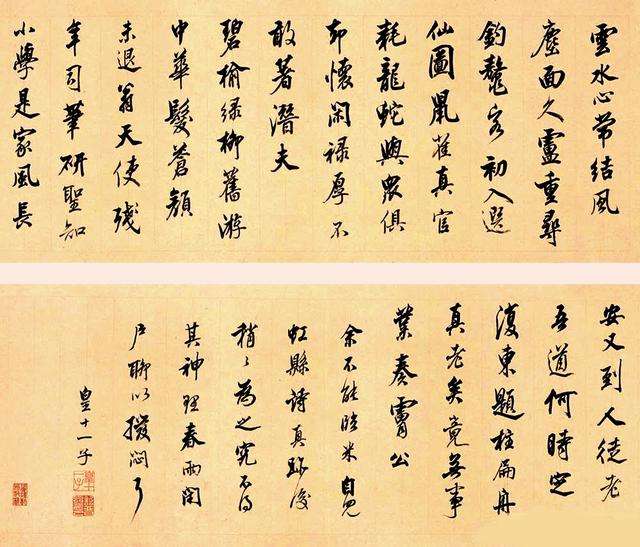 雲水心常結風
塵面久盧重尋
釣鼇客初入選
仙圖鼠雀真官
耗龍蛇與眾俱
卻懷閑祿厚不
敢著潛夫
碧榆綠柳舊游
中華髮蒼顏
未退翁天使殘
年司筆研聖知
小學是家風長
安又到人徒老
吾道何時定
復東題柱扁舟
真老矣竟無事
業奏膚公
余不能臨米自見
虹縣詩真跡後
稍〻為之究不得
其神理春雨閉
戶聊以撥悶耳
皇十一子